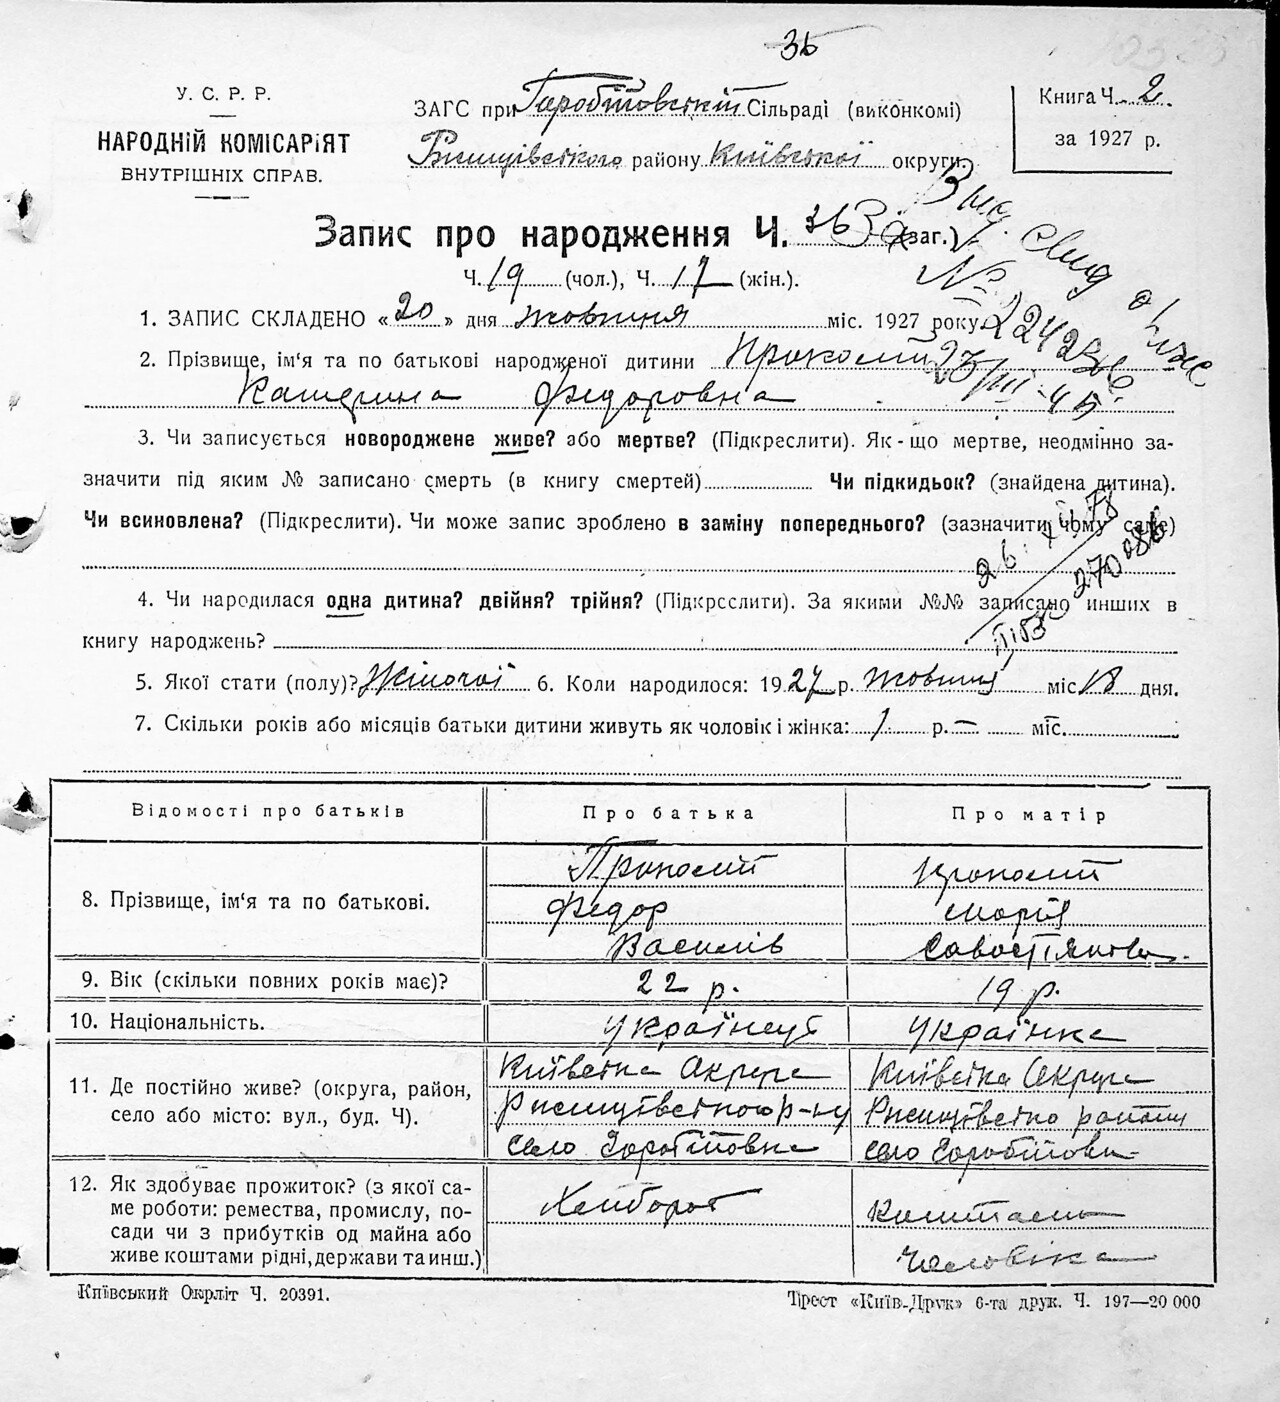 36
У. С. Р. Р.
НАРОДНІЙ КОМІСАРІЯТ
ВНУТРІШНІХ СПРАВ.
ЗАГС при Сільраді (виконкомі)
району Київської округи
Книга Ч. 2.
за 1927 р.
Запис про народження Ч. (заг.)
Ч. 19 (чол.), Ч. 17 (жін.).
1. ЗАПИС СКЛАДЕНО «20» дня жовтня міс. 1927 року.
2. Прізвище, ім'я та по батькові народженої дитини
Катерина Федоровна
Вид. свид о
№
23/III-45
3. Чи записується новороджене живе? або мертве? (Підкреслити). Як-що мертве, неодмінно за-
значити під яким № записано смерть (в книгу смертей) Чи підкидьок? (знайдена дитина).
Чи всиновлена? (Підкреслити). Чи може запис зроблено в заміну попереднього? (зазначити чому саме)
270086
4. Чи народилася одна дитина? двійня? трійня? (Підкреслити). За якими №№ записано инших в
книгу народжень?
5. Якої стати (полу)? Жіночої 6. Коли народилося: 1927 р. жовтня міс 18 дня.
7. Скільки років або місяців батьки дитини живуть як чоловік і жінка: 1 р. — міс.
Відомості про батьків
Про батька
Про матір
8. Прізвище, ім'я та по батькові.
Федор
Василів
Марія
9. Вік (скільки повних років має)?
22 р.
19 р.
10. Національність.
Українець
Українка
11. Де постійно живе? (округа, район,
село або місто: вул., буд. Ч).
Київска Округа
село
Київска Округа
село
12. Як здобуває прожиток? (з якої са-
ме роботи: ремества, промислу, по-
сади чи з прибутків од майна або
живе коштами рідні, держави та инш.)
Хлібороб
Коштами
Чоловіка
Київський Окрліт Ч. 20391.
Трест «Київ-Друк» 6-та друк. Ч. 197—20 000